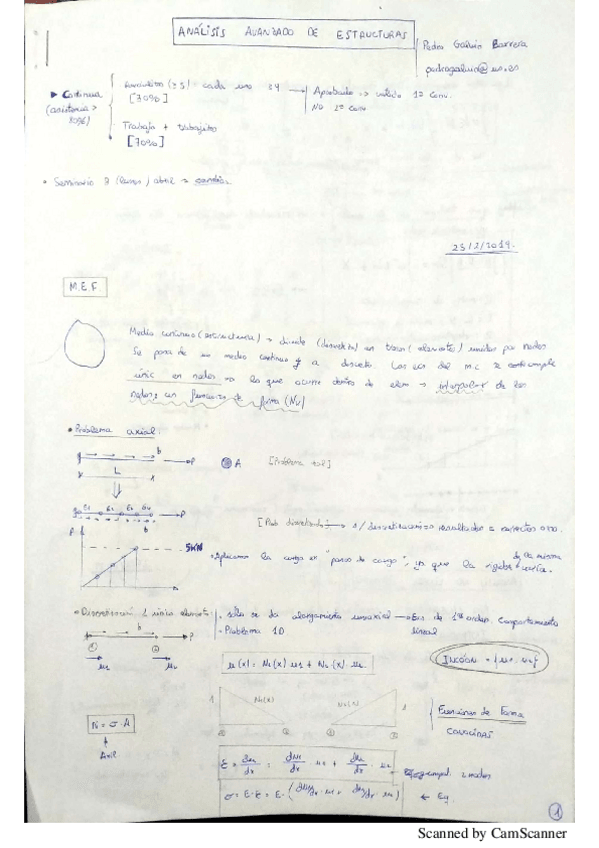 ANÁLISIS AVANZADO DE ESTRUCTURAS
Pedro Galvín Barrera
pedrogalvin@us.es
cada uno ≥4 → Aprobado → válido 1ª Conv.
[30%] NO 2ª Conv
▶ Continua
(asistencia >
80%)
Trabajo + trabajitos
[70%]
• Seminario 8 (lunes) abril →
25/2/2019.
M.E.F.
Medio continuo (estructura) → divide (discretiza) en trozos (elementos) unidos por nodos
Se pasa de un medio continuo a discreto Las ecs del m.c se cumple
únic en nodos → lo que ocurre dentro de elem → interpolar de los
nodos con funciones de forma (Nu)
• Problema axial:
b
P
A [Problema real]
L
e1 e2 e3 e4 P
b
[Prob discretizado] → resultados correctos
P
5kN
• Aplicamos la carga en "pasos de carga", ya que la rigidez varía.
• Discretización 1 único elemento: • sólo se da alargamiento uniaxial → Ecs de 1º orden. Comportamiento
lineal
• Problema 1D
b P
① ②
u1 u2
u(x) = N1(x) u1 + N2(x) u2
INCÓGN = {u1, u2}
1 N1(x) N2(x) 1
① ② ① ②
Funciones de Forma
CONOCIDAS
N = σ·A
Axil
ε = du/dx = dN1/dx · u1 + dN2/dx · u2
σ = E·ε = E·(dN1/dx · u1 + dN2/dx · u2)
1
Scanned by CamScanner